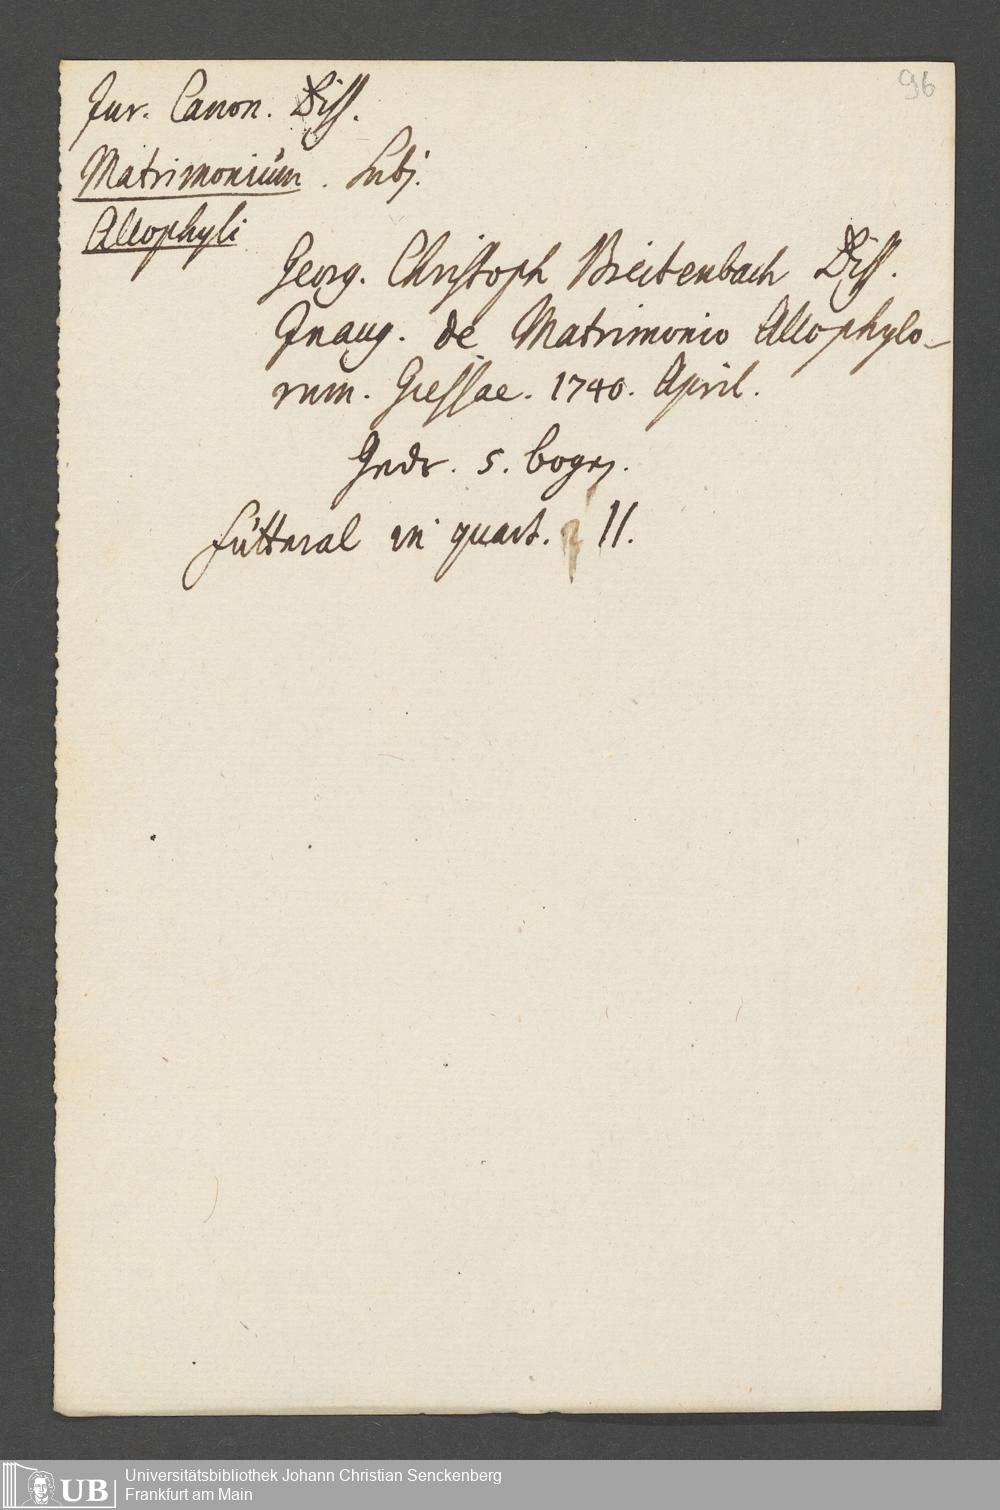 96
Jur. Canon. Diss.
Matrimonium. Subj.
Allophyli
Georg. Christoph Breitenbach Diss.
Inaug. de Matrimonio Allophylo-
rum. Giessae. 1740. April.
5. bogen.
Futteral in quart. 11.
UB Universitätsbibliothek Johann Christian Senckenberg
Frankfurt am Main